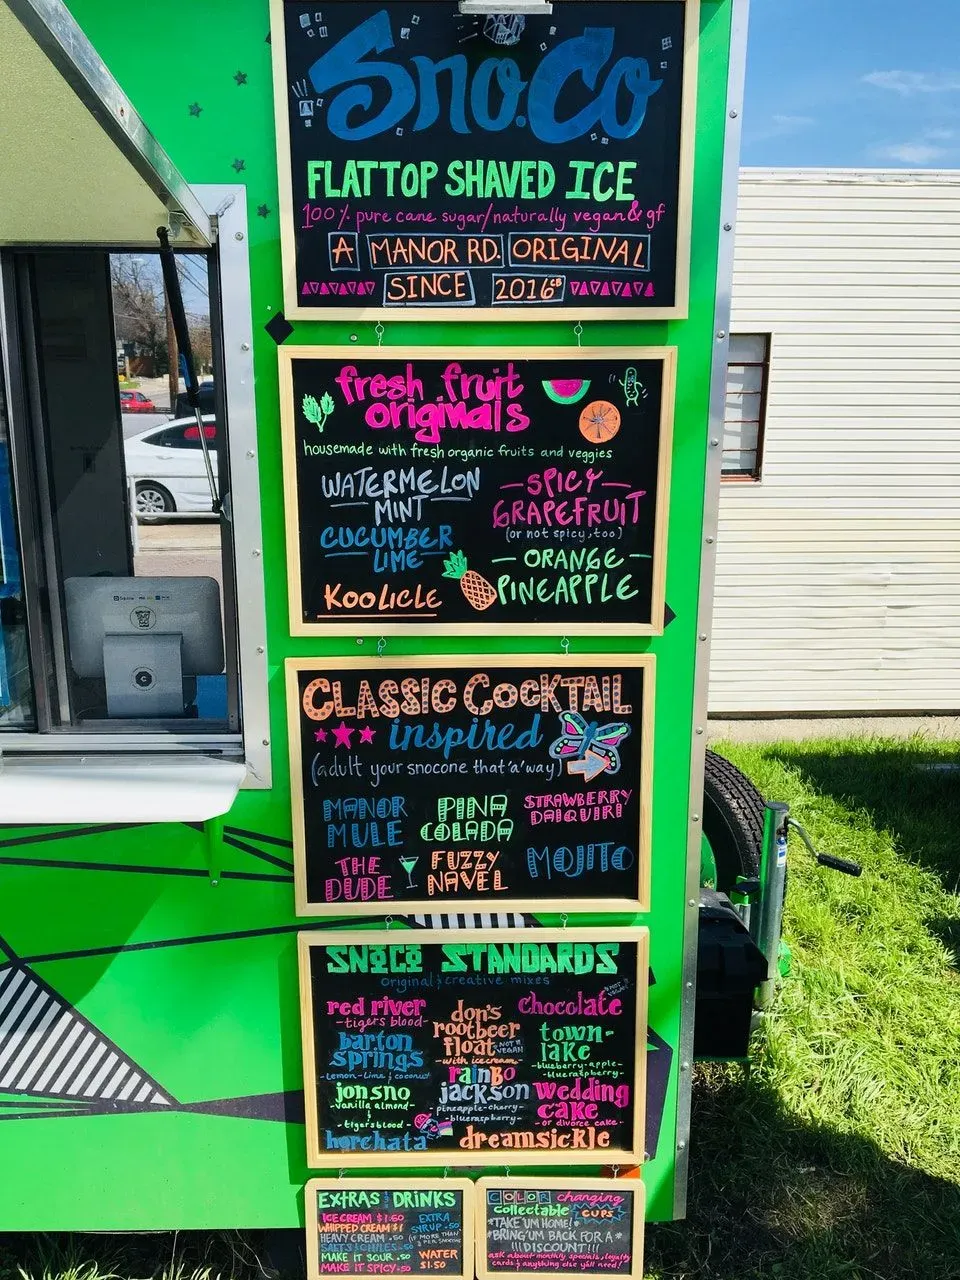 Sno.Co
FLATTOP SHAVED ICE
100% pure cane sugar/naturally vegan & gf
A MANOR RD. ORIGINAL
SINCE 2016
fresh fruit
originals
housemade with fresh organic fruits and veggies
WATERMELON
MINT
CUCUMBER
LIME
KOOLICLE
SPICY
GRAPEFRUIT
(or not spicy, too)
ORANGE
PINEAPPLE
CLASSIC COCKTAIL
inspired
(adult your snocone that 'a' way)
MANOR
MULE
PINA
COLADA
STRAWBERRY
DAIQUIRI
THE
DUDE
FUZZY
NAVEL
MOJITO
SNOCO STANDARDS
original & creative mixes
red river
-tigers blood-
barton
springs
-lemon-lime & coconut-
jon sno
-vanilla almond-
&
-tigersblood-
horchata
don's
rootbeer
float
NOT VEGAN
-with icecream-
rainbo
jackson
pineapple-cherry-
-blueraspberry-
chocolate
town-
lake
-blueberry-apple-
-blueraspberry-
wedding
cake
-or divorce cake-
dreamsickle
EXTRAS & DRINKS
ICE CREAM $1.50
WHIPPED CREAM $1
HEAVY CREAM .50
SALTS & CHILES .50
MAKE IT SOUR .50
MAKE IT SPICY .50
EXTRA
SYRUP .50
WATER
$1.50
COLOR changing
collectable CUPS
*TAKE 'UM HOME!*
*BRING 'UM BACK FOR A*
!!!DISCOUNT!!!
ask about monthly specials, loyalty
cards & anything else y'all need!